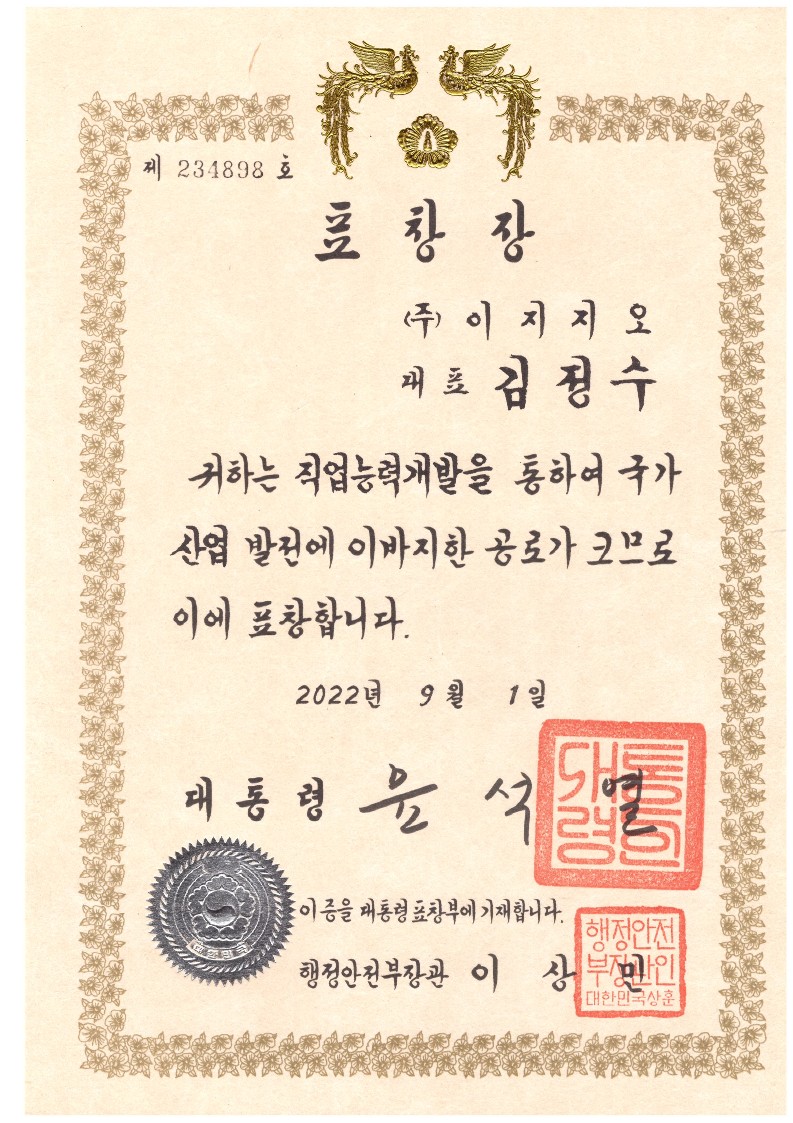 제 234898 호
표창장
(주) 이지지오
대표 김정수
귀하는 직업능력개발을 통하여 국가
산업 발전에 이바지한 공로가 크므로
이에 표창합니다.
2022년 9월 1일
대통령 윤석열
대통령의인
이 증을 대통령표창부에 기재합니다.
행정안전부장관 이상민
행정안전
부장관인
대한민국상훈
대한민국